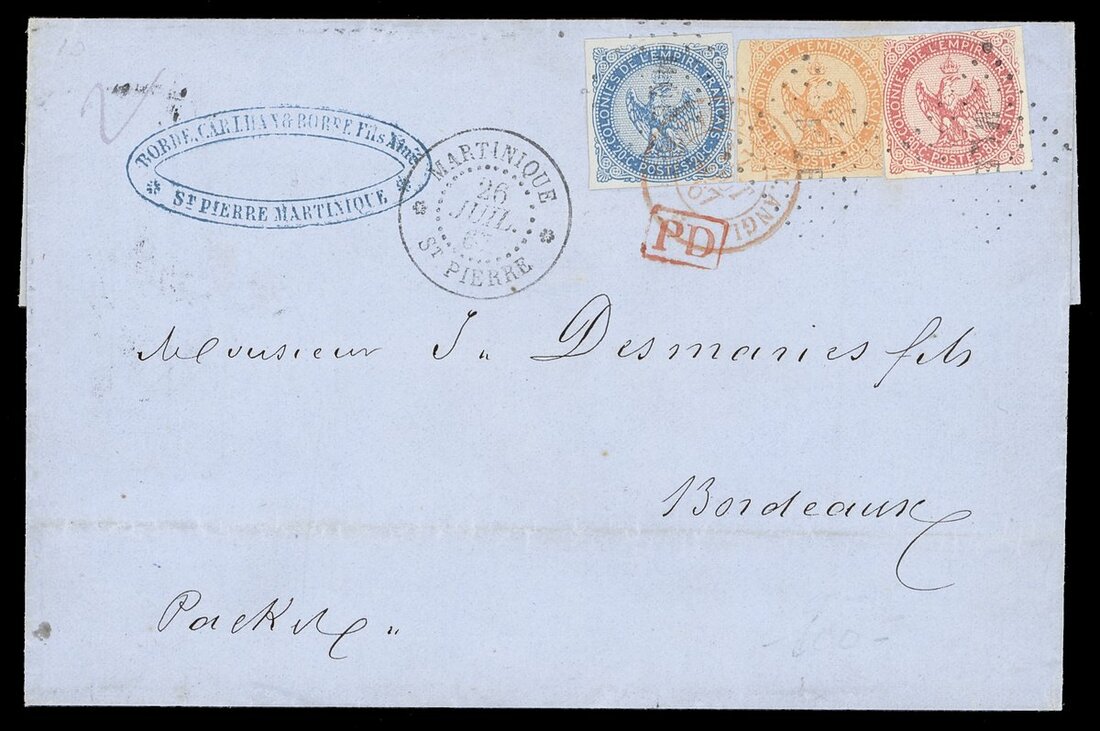 BORDE, CARLHAN & BORDE Fils Aîné
ST PIERRE MARTINIQUE
MARTINIQUE
26
JUIL.
67
ST PIERRE
COLONIES DE L'EMPIRE FRANÇAIS
20C. POSTES 20C.
COLONIES DE L'EMPIRE FRANÇAIS
POSTES
COLONIES DE L'EMPIRE FRANÇAIS
POSTES
ANGL
67
PD
Monsieur J. Desmaries fils
Bordeaux
Packet